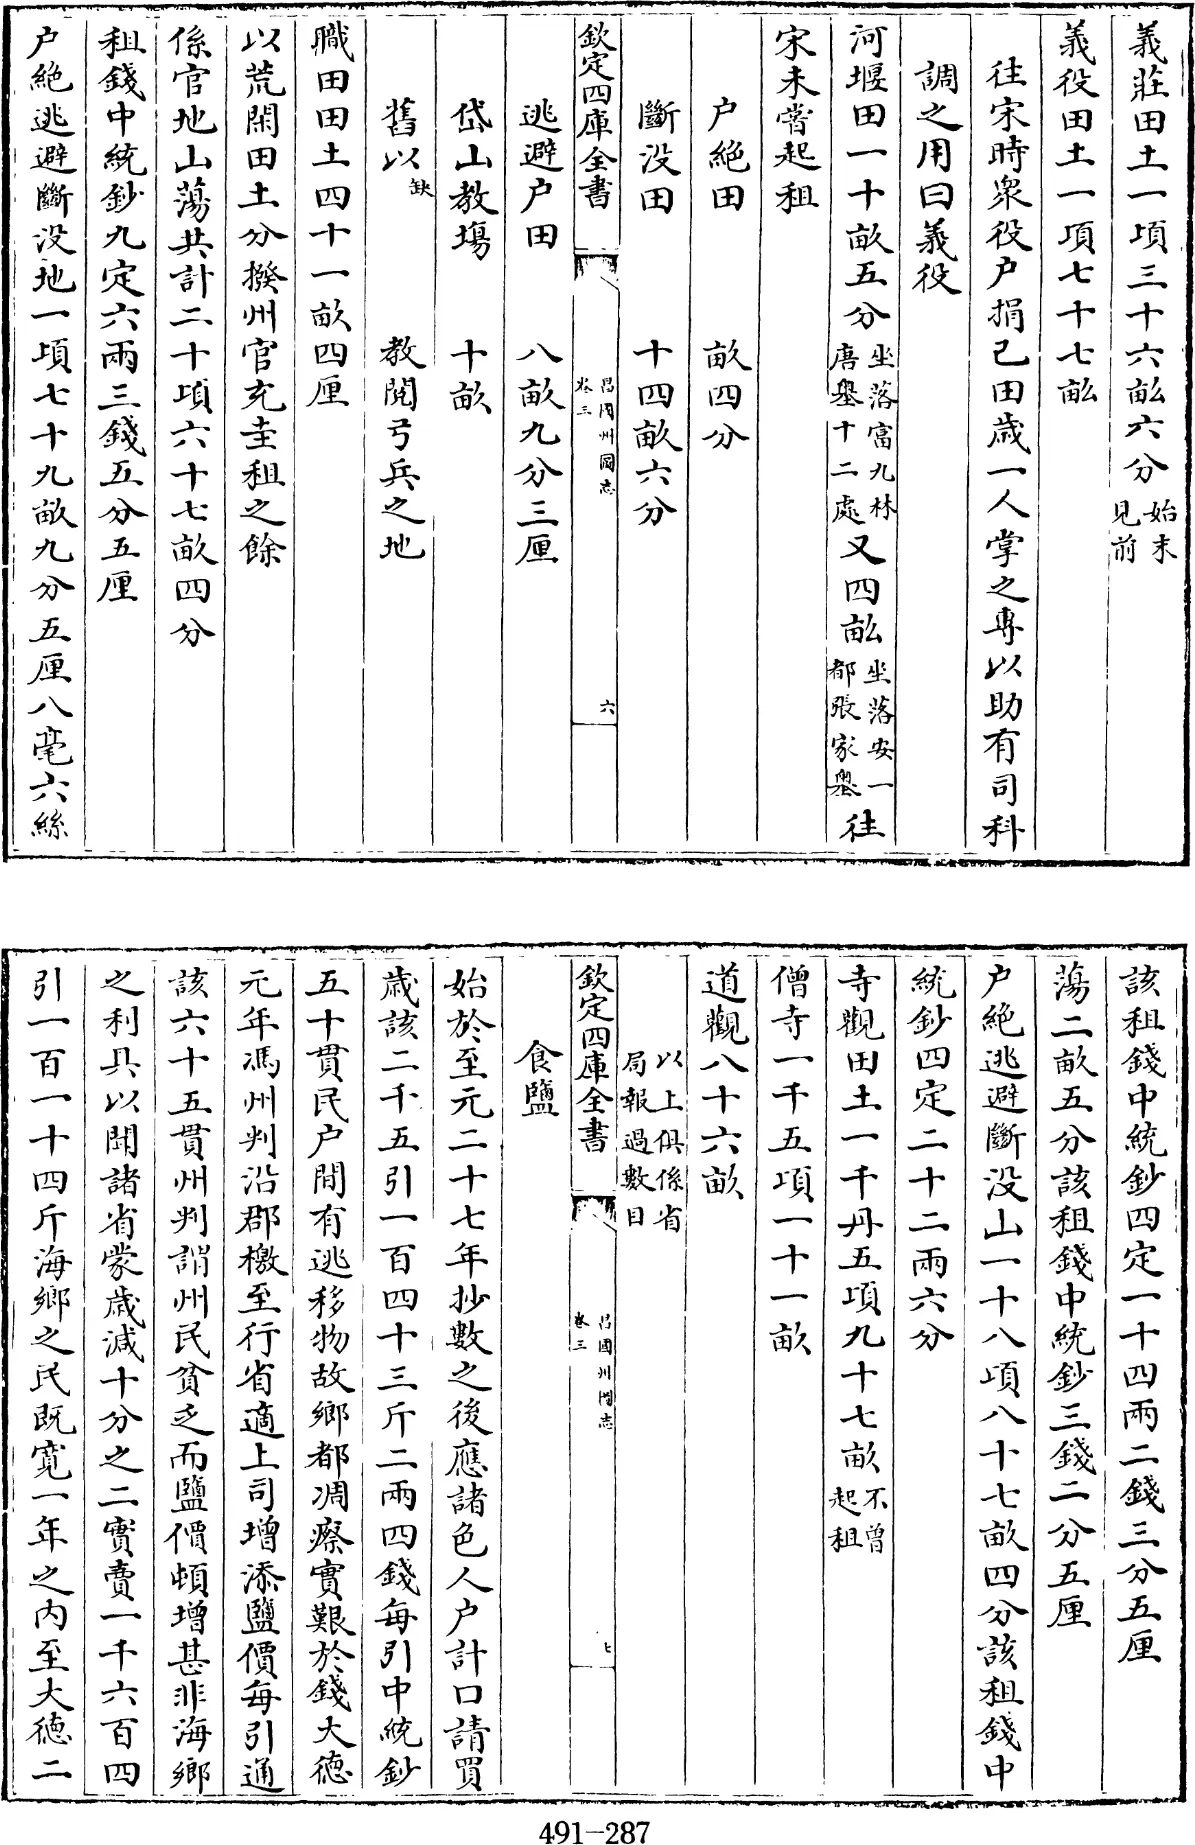 義莊田土一項三十六畝六分始末見前
義役田土一項七十七畝
往宋時衆役户捐己田歳一人掌之専以助有司科
調之用曰義役
河堰田一十畝五分坐落富九林唐嶴十二處又四畝坐落安一都張家嶴往
宋未嘗起租
户絶田 畝四分
斷没田 十四畝六分
欽定四庫全書 昌國州圖志 卷三 六
逃避户田 八畝九分三厘
岱山教塲 十畝
舊以缺 教閲弓兵之地
職田田土四十一畝四厘
以荒閑田土分撥州官充圭租之餘
係官地山蕩共計二十項六十七畝四分
租錢中統鈔九定六兩三錢五分五厘
户絶逃避斷没地一項七十九畝九分五厘八毫六絲
該租錢中統鈔四定一十四兩二錢三分五厘
蕩二畝五分該租錢中統鈔三錢二分五厘
户絶逃避斷没山一十八項八十七畝四分該租錢中
統鈔四定二十二兩六分
寺觀田土一千丹五項九十七畝不曾起租
僧寺一千五項一十一畝
道觀八十六畝
以上俱係省局報過數目
欽定四庫全書 昌國州圖志 卷三 七
食鹽
始於至元二十七年抄數之後應諸色人户計口請買
歳該二千五引一百四十三斤二兩四錢每引中統鈔
五十貫民户間有逃移物故鄉都凋瘵實艱於錢大德
元年馮州判沿郡檄至行省適上司增添鹽價每引通
該六十五貫州判誚州民貧乏而鹽價頓增甚非海鄉
之利具以聞諸省蒙歳減十分之二實賣一千六百四
引一百一十四斤海鄉之民既寛一年之内至大德二
491-287